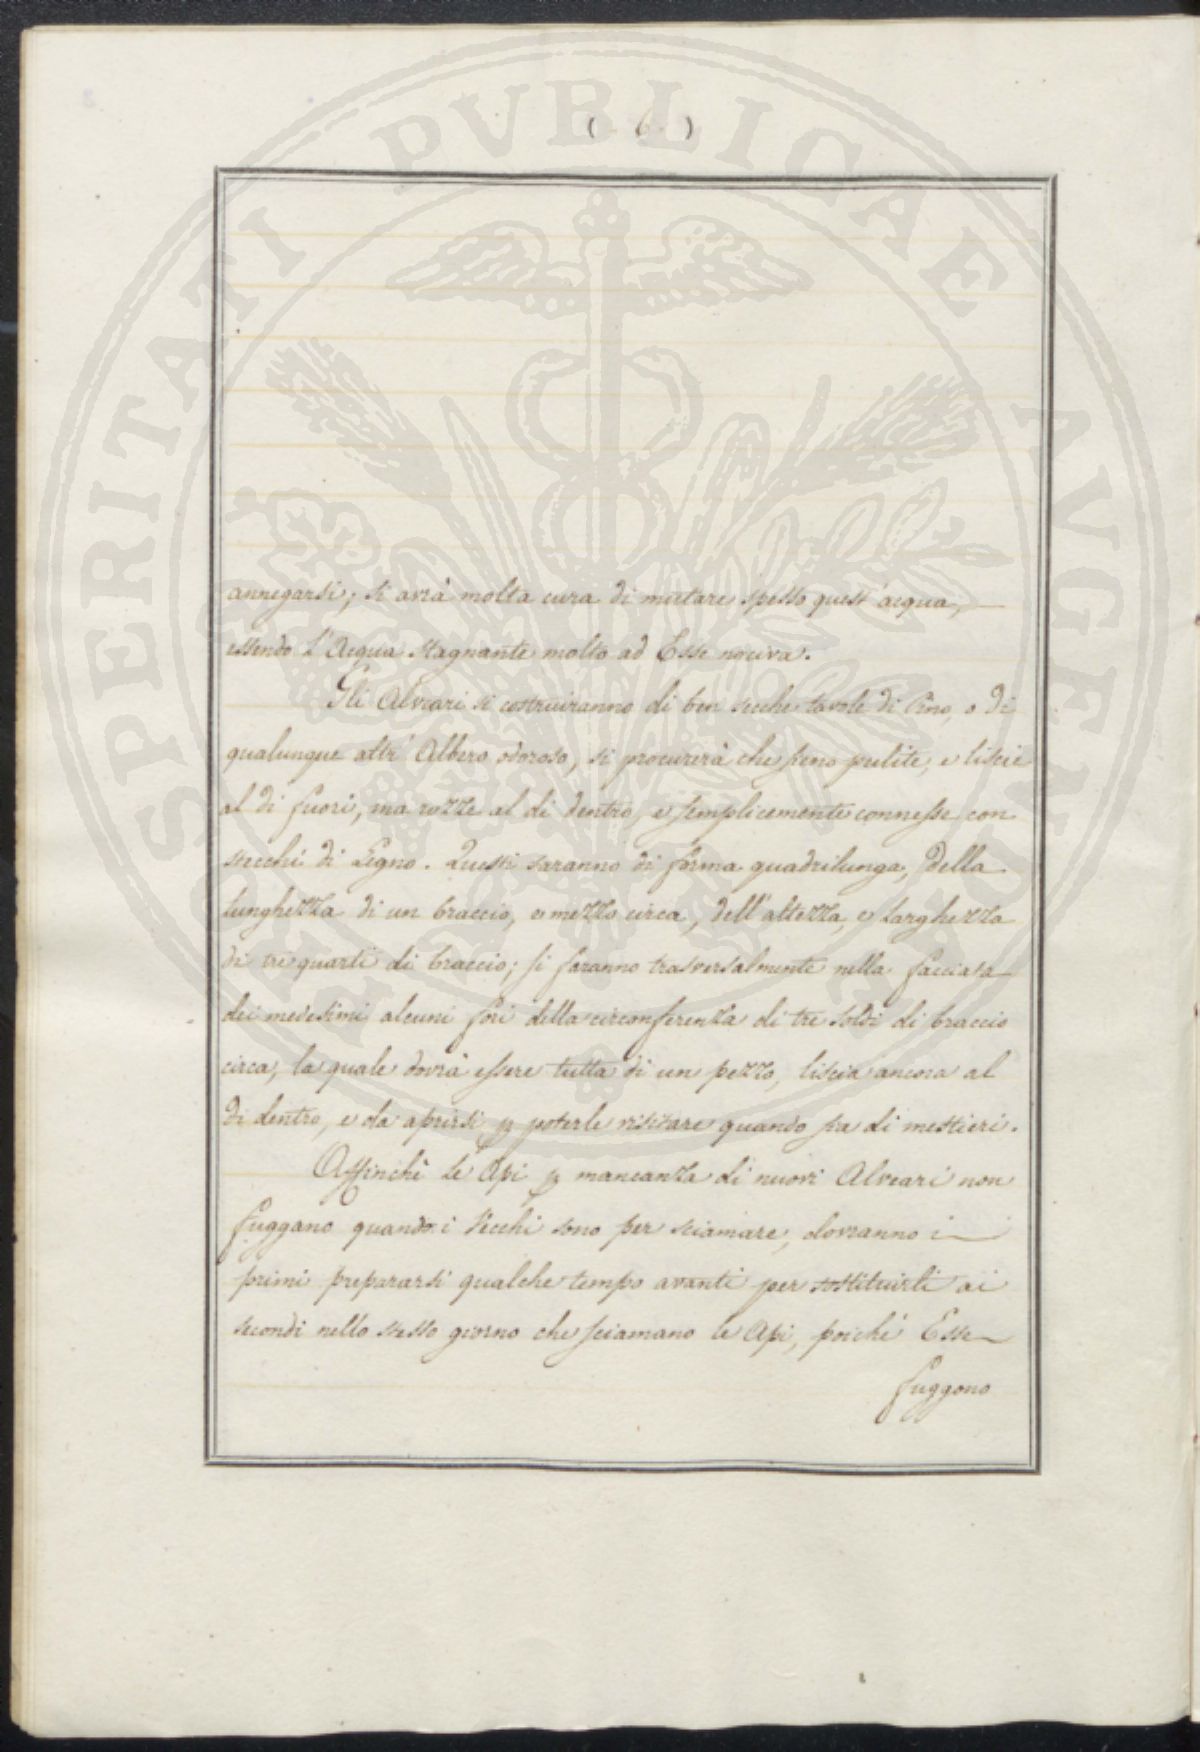 ( 6. )
annegarsi; si avrà molta cura di mutare spesso quest'acqua,
essendo l'Acqua stagnante molto ad Esse nociva.
Gli Alveari si costruiranno di ben secche tavole di Pino, o di
qualunque altr' Albero odoroso, si procurerà che sieno pulite, e liscie
al di fuori, ma rozze al di dentro, e semplicemente connesse con
stecchi di Legno. Questi saranno di forma quadrilunga, della
lunghezza di un braccio, e mezzo circa, dell'altezza, e larghezza
di tre quarti di braccio; si faranno trasversalmente nella facciata
dei medesimi alcuni fori della circonferenza di tre soldi di braccio
circa, la quale dovrà essere tutta di un pezzo, liscia ancora al
di dentro, e da aprirsi p poterle visitare quando fia di mestieri.
Affinchè le Api p mancanza di nuovi Alveari non
fuggano quando i Vecchi sono per sciamare, dovranno i
primi prepararsi qualche tempo avanti per sostituirli ai
secondi nello stesso giorno che sciamano le Api, poichè Esse
fuggono
SPERITATI PVBLICAE AVGENDAE